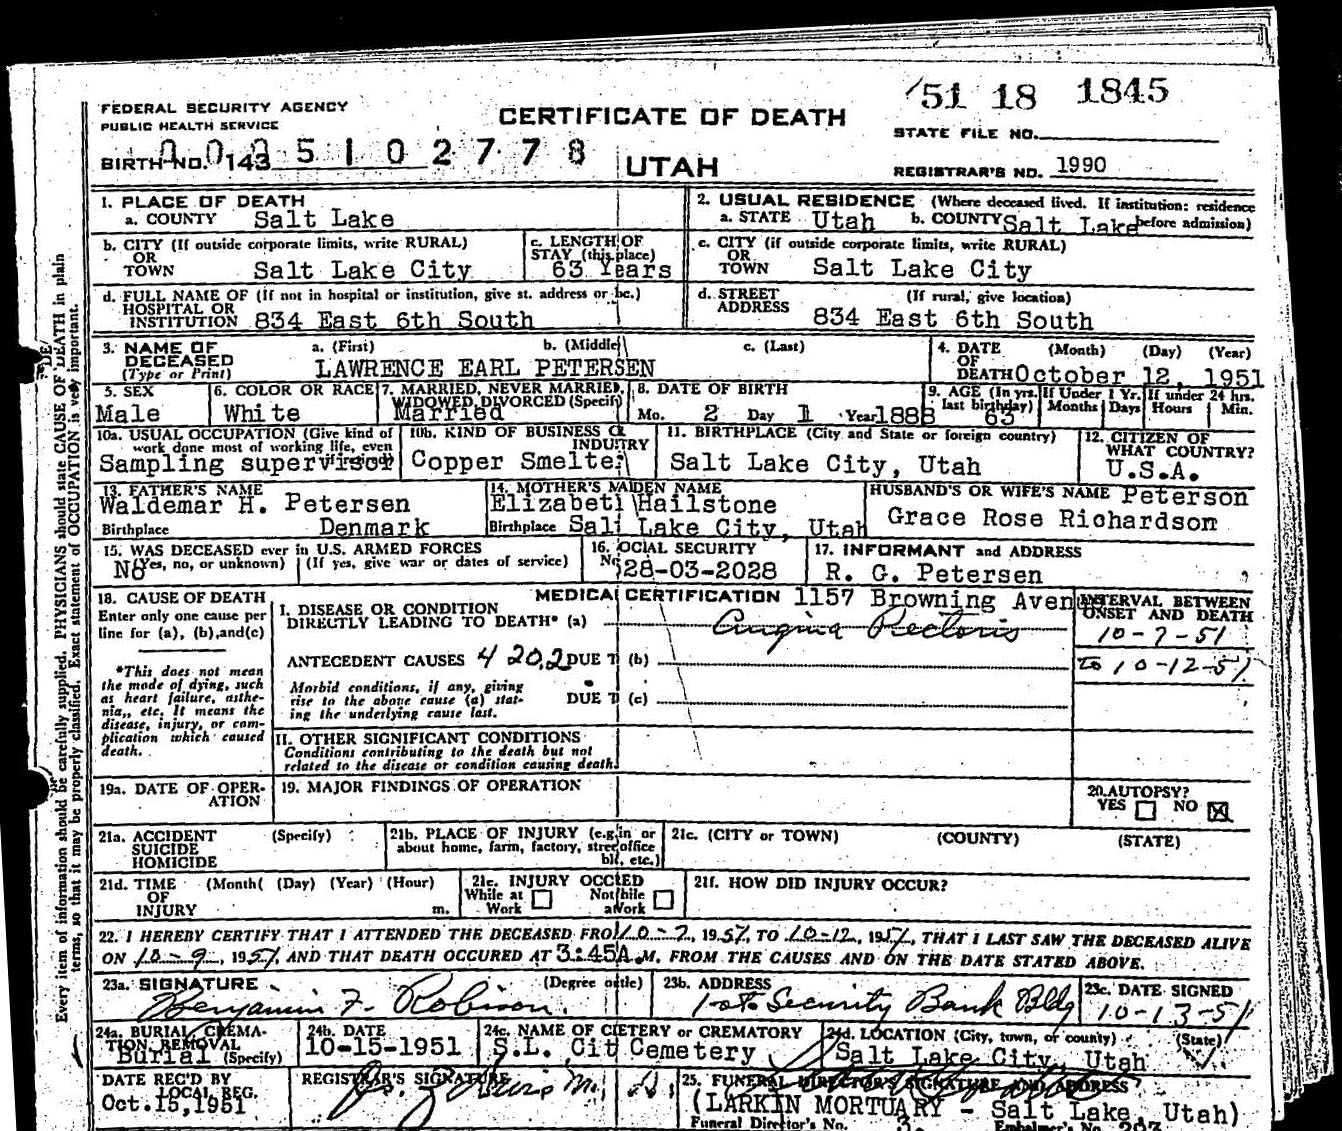 '51 18 1845
FEDERAL SECURITY AGENCY
PUBLIC HEALTH SERVICE
CERTIFICATE OF DEATH
STATE FILE NO.
BIRTH NO. 143 5 1 0 2 7 7 8
UTAH
REGISTRAR'S NO. 1990
1. PLACE OF DEATH
a. COUNTY Salt Lake
2. USUAL RESIDENCE (Where deceased lived. If institution: residence before admission)
a. STATE Utah b. COUNTY Salt Lake
b. CITY (If outside corporate limits, write RURAL)
OR
TOWN Salt Lake City
c. LENGTH OF
STAY (this place)
63 Years
c. CITY (if outside corporate limits, write RURAL)
OR
TOWN Salt Lake City
d. FULL NAME OF (If not in hospital or institution, give st. address or
HOSPITAL OR
INSTITUTION 834 East 6th South
d. STREET (If rural, give location)
ADDRESS 834 East 6th South
3. NAME OF a. (First) b. (Middle) c. (Last)
DECEASED
(Type or Print) LAWRENCE EARL PETERSEN
4. DATE (Month) (Day) (Year)
OF
DEATH October 12, 1951
5. SEX
Male
6. COLOR OR RACE
White
7. MARRIED, NEVER MARRIED,
WIDOWED, DIVORCED (Specify)
Married
8. DATE OF BIRTH
Mo. 2 Day 1 Year 1888
9. AGE (In yrs.
last birthday)
63
If Under 1 Yr.
Months Days
If under 24 hrs.
Hours Min.
10a. USUAL OCCUPATION (Give kind of
work done most of working life, even
if retired)
Sampling supervisor
10b. KIND OF BUSINESS OR
INDUSTRY
Copper Smelter
11. BIRTHPLACE (City and State or foreign country)
Salt Lake City, Utah
12. CITIZEN OF
WHAT COUNTRY?
U.S.A.
13. FATHER'S NAME
Waldemar H. Petersen
Birthplace Denmark
14. MOTHER'S MAIDEN NAME
Elizabeth Hailstone
Birthplace Salt Lake City, Utah
HUSBAND'S OR WIFE'S NAME Peterson
Grace Rose Richardson
15. WAS DECEASED ever in U.S. ARMED FORCES
(Yes, no, or unknown) (If yes, give war or dates of service)
No
16. SOCIAL SECURITY
No. 28-03-2028
17. INFORMANT and ADDRESS
R. G. Petersen
1157 Browning Avenue
18. CAUSE OF DEATH
Enter only one cause per
line for (a), (b), and (c)
*This does not mean
the mode of dying, such
as heart failure, asthe-
nia, etc. It means the
disease, injury, or com-
plication which caused
death.
MEDICAL CERTIFICATION
I. DISEASE OR CONDITION
DIRECTLY LEADING TO DEATH* (a) Angina Pectoris
ANTECEDENT CAUSES 4 20.2 DUE T (b)
Morbid conditions, if any, giving
rise to the above cause (a) stat-
ing the underlying cause last.
DUE T (c)
II. OTHER SIGNIFICANT CONDITIONS
Conditions contributing to the death but not
related to the disease or condition causing death.
INTERVAL BETWEEN
ONSET AND DEATH
10-7-51
to 10-12-51
19a. DATE OF OPER-
ATION
19. MAJOR FINDINGS OF OPERATION
20. AUTOPSY?
YES NO X
21a. ACCIDENT (Specify)
SUICIDE
HOMICIDE
21b. PLACE OF INJURY (e.g. in or
about home, farm, factory, street office
etc.)
21c. (CITY or TOWN) (COUNTY) (STATE)
21d. TIME (Month( (Day) (Year) (Hour)
OF
INJURY m.
21e. INJURY OCCIED
While at
Work
Not hile
a Work
21f. HOW DID INJURY OCCUR?
22. I HEREBY CERTIFY THAT I ATTENDED THE DECEASED FRO 10-7, 1951, TO 10-12, 1951, THAT I LAST SAW THE DECEASED ALIVE
ON 10-9, 1951, AND THAT DEATH OCCURED AT 3:45A.M. FROM THE CAUSES AND ON THE DATE STATED ABOVE.
23a. SIGNATURE (Degree or title)
Benjamin F. Robison
23b. ADDRESS
1st Security Bank Bldg
23c. DATE SIGNED
10-13-51
24a. BURIAL, CREMA-
TION, REMOVAL
Burial (Specify)
24b. DATE
10-15-1951
24c. NAME OF CETERY or CREMATORY
S.L. Cit Cemetery
24d. LOCATION (City, town, or county) (State)
Salt Lake City, Utah
DATE REC'D BY
LOCAL REG.
Oct. 15, 1951
REGISTRAR'S SIGNATURE
25. FUNERAL DIRECTOR'S SIGNATURE AND ADDRESS
(LARKIN MORTUARY - Salt Lake, Utah)
Funeral Director's No. 3. Embalmer's No.
Every item of information should be carefully supplied. PHYSICIANS should state CAUSE OF DEATH in plain
terms, so that it may be properly classified. Exact statement of OCCUPATION is very important.